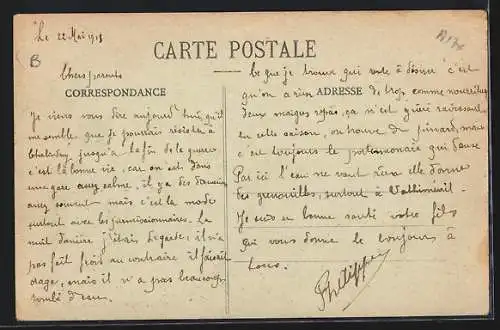 Le 22 Mai 1918
B
CARTE POSTALE
Chers parents
CORRESPONDANCE
Je viens vous dire aujourd'hui, qu'il
me semble que je pourrais résister à
jusqu'à la fin de la guerre
c'est la bonne vie car on est dans
une gare assez calme, il y a des
assez souvent mais c'est la mode
surtout avec les permissionnaires. La
nuit dernière j'étais de garde, il n'a
pas fait froid au contraire il faisait
orage, mais il n'a pas beaucoup
tombé d'eau.
Ce que je trouve qui reste à désirer c'est
qu'on a rien de trop comme nourriture
ADRESSE
deux maigres repas, ça n'est guère ravissant
en cette saison, on trouve du pinard, mais
c'est toujours le portemonnaie qui danse
Par ici l'eau ne vaut rien elle donne
des grenouilles, surtout à
Je suis en bonne santé votre fils
qui vous donne le bonjour à
tous.
Philippe